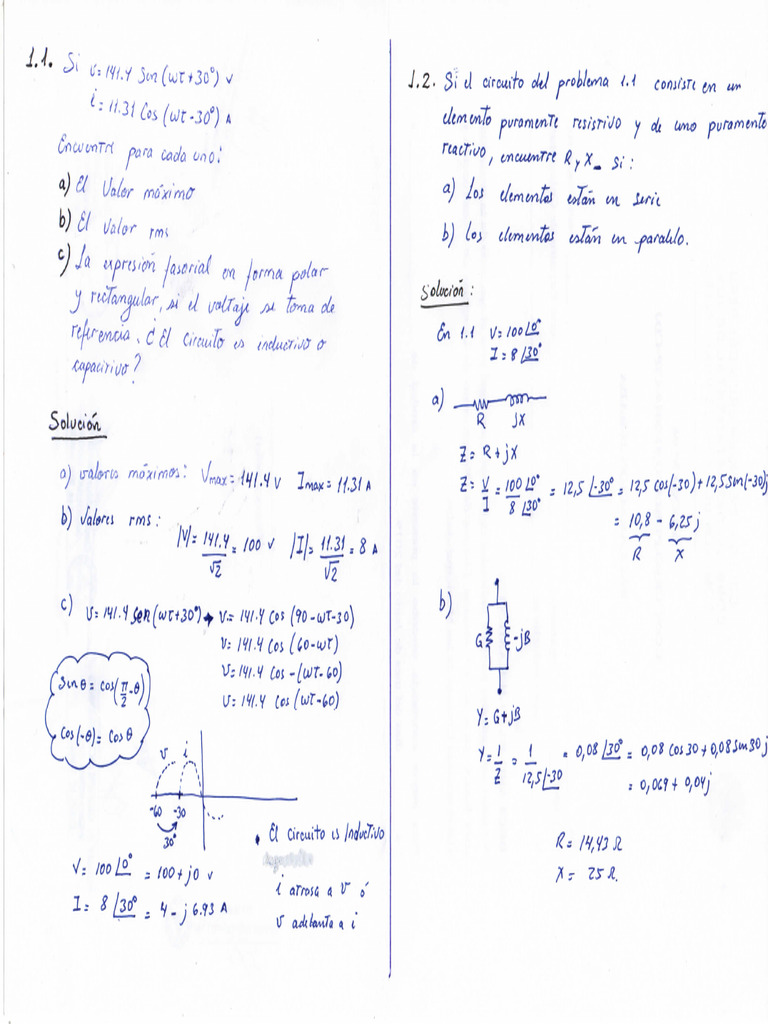 1.1. Si v=141.4 Sen(ωt+30°) v
i=11.31 Cos(ωt-30°) A
Encuentre para cada uno:
a) El Valor máximo
b) El Valor rms
c) La expresión fasorial en forma polar
y rectangular, si el voltaje se toma de
referencia. ¿El circuito es inductivo o
capacitivo?
Solución
a) valores máximos: Vmax=141.4 v Imax=11.31 A
b) Valores rms:
|V|=141.4/√2=100 v |I|=11.31/√2=8 A
c) v=141.4 sen(ωt+30°) → v=141.4 cos(90-ωt-30)
v=141.4 cos(60-ωt)
v=141.4 cos-(ωt-60)
v=141.4 cos(ωt-60)
Sinθ=cos(π/2-θ)
Cos(-θ)=Cosθ
v i
-60 -30
30°
• El Circuito es Inductivo
V= 100∠0° = 100+j0 v
I= 8∠30° = 4-j6.93 A
i atrasa a v ó
v adelanta a i
1.2. Si el circuito del problema 1.1 consiste en un
elemento puramente resistivo y de uno puramente
reactivo, encuentre R y X. Si:
a) Los elementos están en serie
b) Los elementos están en paralelo.
Solución:
En 1.1 V=100∠0°
I=8∠30°
a)
R jX
Z=R+jX
Z=V/I=100∠0°/8∠30°=12,5∠-30°=12,5 cos(-30)+12,5 sin(-30)j
=10,8-6,25j
R X
b)
G -jB
Y=G+jB
Y=1/Z=1/12,5∠-30=0,08∠30°=0,08 cos30+0,08 sin30 j
=0,069+0,04j
R=14,43 Ω
X=25 Ω.